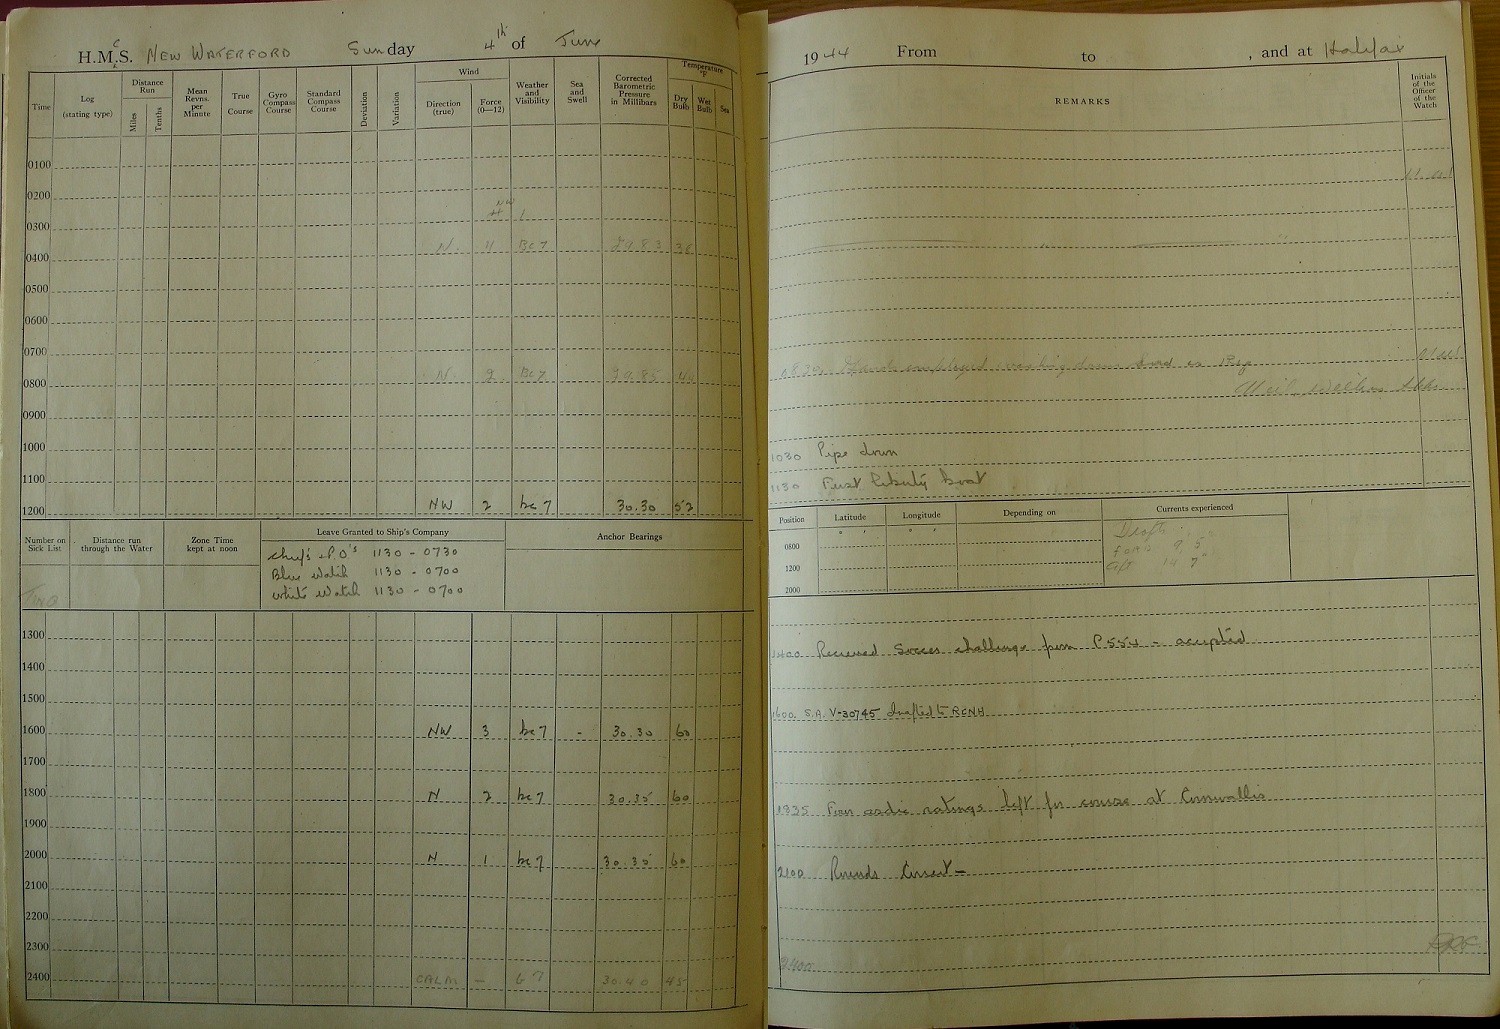 H.M.C.S. NEW WATERFORD Sunday 4th of June
Time
Log
(stating type)
Distance
Run
Miles
Tenths
Mean
Revns.
per
Minute
True
Course
Gyro
Compass
Course
Standard
Compass
Course
Deviation
Variation
Wind
Direction
(true)
Force
(0—12)
Weather
and
Visibility
Sea
and
Swell
Corrected
Barometric
Pressure
in Millibars
Temperature
°F
Dry
Bulb
Wet
Bulb
Sea
0100
0200
0300
0400 N. 4 Bc7 29.83 38
0500
0600
0700
0800 N. 2 Bc7 29.85 44
0900
1000
1100
1200 NW 2 bc7 30.30 52
Number on
Sick List
Two
Distance run
through the Water
Zone Time
kept at noon
Leave Granted to Ship's Company
Chiefs & P.O's 1130 - 0730
Blue Watch 1130 - 0700
White Watch 1130 - 0700
Anchor Bearings
1300
1400
1500
1600 NW 3 bc7 - 30.30 60
1700
1800 N 2 bc7 30.35 60
1900
2000 N 1 bc7 30.35 60
2100
2200
2300
2400 CALM — b7 30.40 45
1944 From to , and at Halifax
REMARKS
Initials
of the
Officer
of the
Watch
Hands employed washing down and as Req
1030 Pipe down
1130 First liberty boat
Position
Latitude
Longitude
Depending on
Currents experienced
0800
1200
2000
Draft
ford 9' 5"
aft 14' 7"
1400 Received Soccer challenge from P554 - accepted
1600. S.A. V-30745 drafted to RCNH
1835 Four asdic ratings left for course at Cornwallis
2100 Rounds Correct —
2400